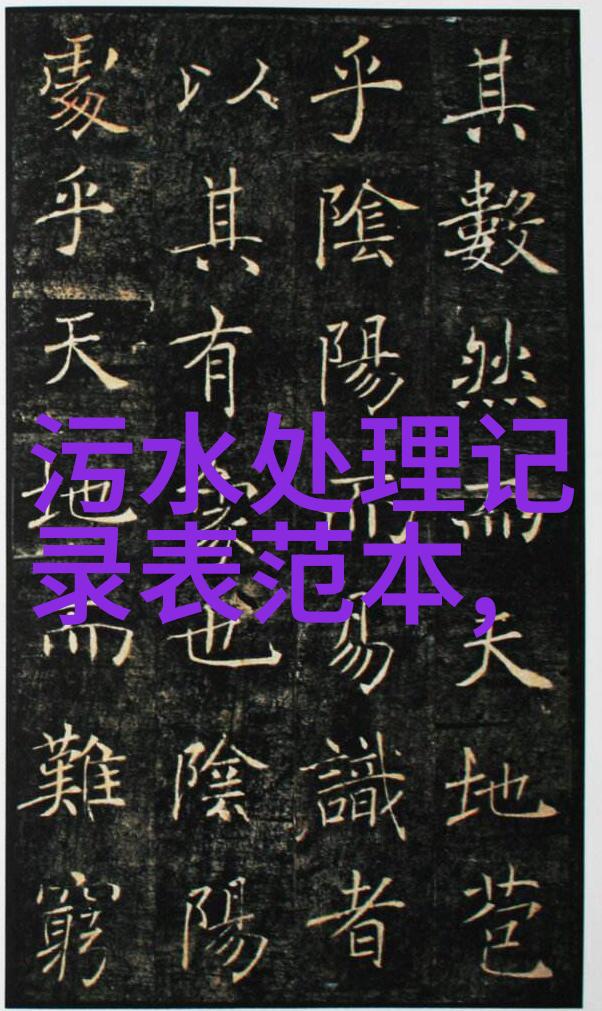 其數然而天地苞
乎陰陽而易識者
以其有象也陰陽
處乎天地而難窮
污水处理记
录表范本,